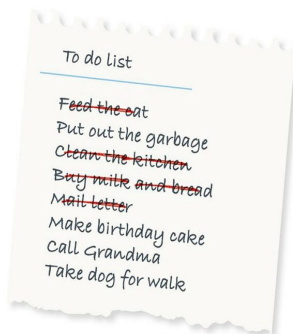 To do list
Feed the cat
Put out the garbage
Clean the kitchen
Buy milk and bread
Mail letter
Make birthday cake
Call Grandma
Take dog for walk